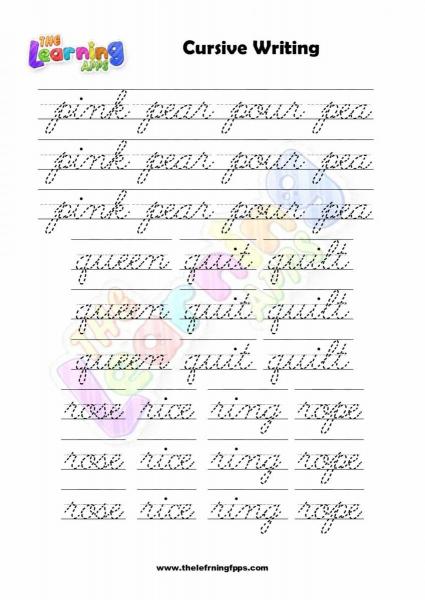 THE
Learning
APPS
Cursive Writing
pink pear pour pea
pink pear pour pea
pink pear pour pea
queen quit quilt
queen quit quilt
queen quit quilt
rose rice ring rope
rose rice ring rope
rose rice ring rope
THE
Learning
APPS
www.thelefrningfpps.com